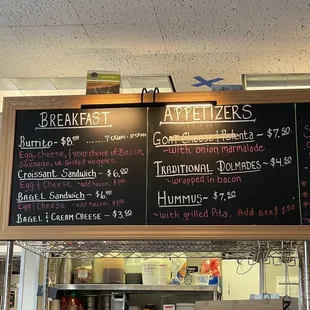 BREAKFAST
Burrito ~ $8.00
Egg, Cheese, & your choice of Bacon,
Sausage, or Grilled veggies.
Croissant Sandwich ~ $6.00
Egg & Cheese ~add bacon $1
Bagel Sandwich ~ $6.00
Egg & Cheese ~add bacon $1
Bagel & Cream Cheese ~ $3.50
APPETIZERS
Goat Cheese Polenta ~ $7.50
~with onion marmalade
Traditional Dolmades ~ $4.50
~wrapped in bacon
Hummus ~ $7.50
~with grilled Pita, Add Beef 1.50